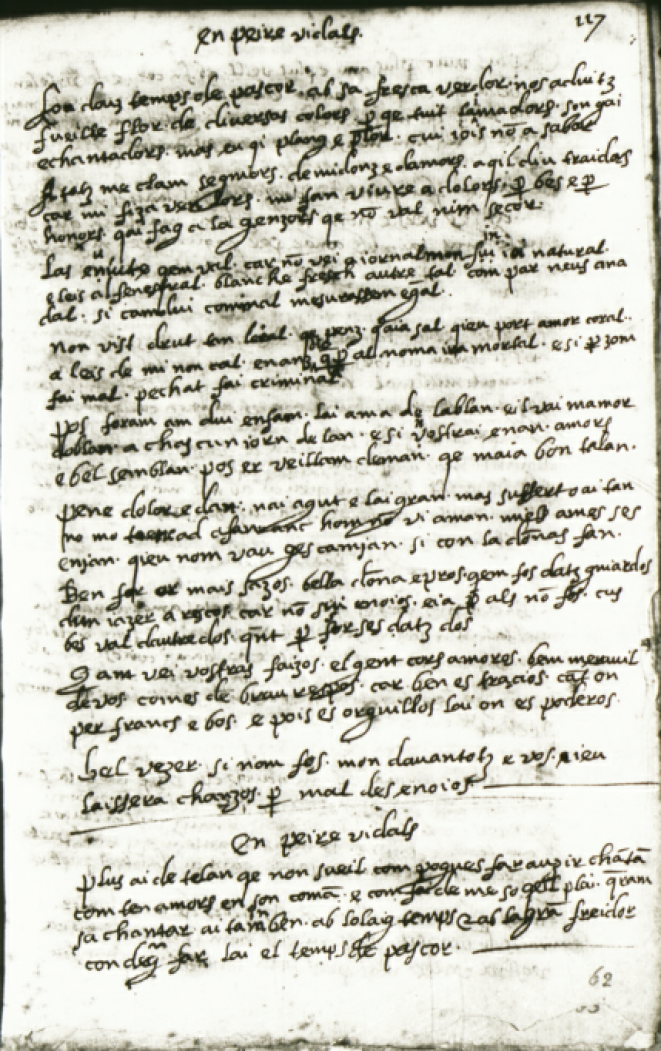 117
en peire vidals.
Lou dauz temps de pascor. ab sa fresca verdor. nos aduitz
fueille e flor. de diversas colors p qe tuit amadors. son gai
e chantadors. mas eu qi plang e plor. cui iois nō a sabor
A totz me clam segnors. de midonz e damors. aqil dui traidors
car mi fiza en lors. mi fan viure a dolors. p bes e p
honors. qai fag a la genzors qe nō val nim secor.
Las e qem val. car nō vei a iornal mon fui natural.
e leis al fenestral. blanche fresch autre tal. com par neus a na
dal. si camdui cominal mesurassen egal.
Non vist drut tan leial. penz qaia sal qieu port amor coral.
a leis de mi non cal. enanz al noma ira mortal. e si p zom
fai mal. pechat fai criminal.
Pos foram am dui enfan. lai ama de lablan. e il vai mamor
doblan a chascun iorn de lan. e si vostrai enan. amors
e bel semblan. pos er veillam deman. qe maia bon talan.
Pene dolor e dan. nai agut e lai gran. mas suffert o ai tan
no mo hom nō vi aman. miels ames ses
enjan. qieu nom vau ges camjan. si con la dōnas fan.
Ben for or mais sazos. bella dōna e pros. qem fos datz guiardos
dun iazer a rescos. car nō sui enoios. e ia p als nō fos. cus
bes val dautre dos. qant p forses datz dos
Qant vei vostras faizos. el gent cors amoros. bem meravil
de vos. comes de brau respos. car ben es tracios. cāt on
per francs e bos. e pois es orguillos lai on es poderos.
Bel vezer. si nom fos. mon davantotz e vos. ieu
laissera chanzos. p mal des enoios
En peire vidals
Plus ai de telan qe non sueil com pogues far auzir chātā
com ten amors en son comā. e com fai de me so qel plai. qram
fa chantar ai tan ben. ab lo laig temps e ab la grā freidor
con degr far lai el temps de pascor.
62